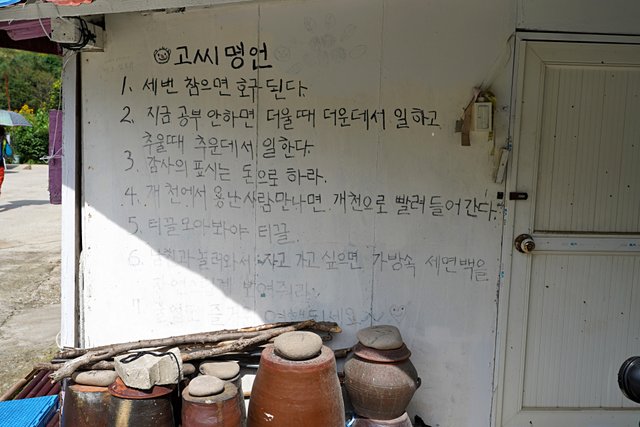 고씨 명언
1. 세번 참으면 호구 된다.
2. 지금 공부 안하면 더울때 더운데서 일하고
추울때 추운데서 일한다.
3. 감사의 표시는 돈으로 하라.
4. 개천에서 용난 사람 만나면 개천으로 빨려들어간다.
5. 티끌모아봐야 티끌
6. 놀러와서 자고 가고 싶으면 가방속 세면백을
7.